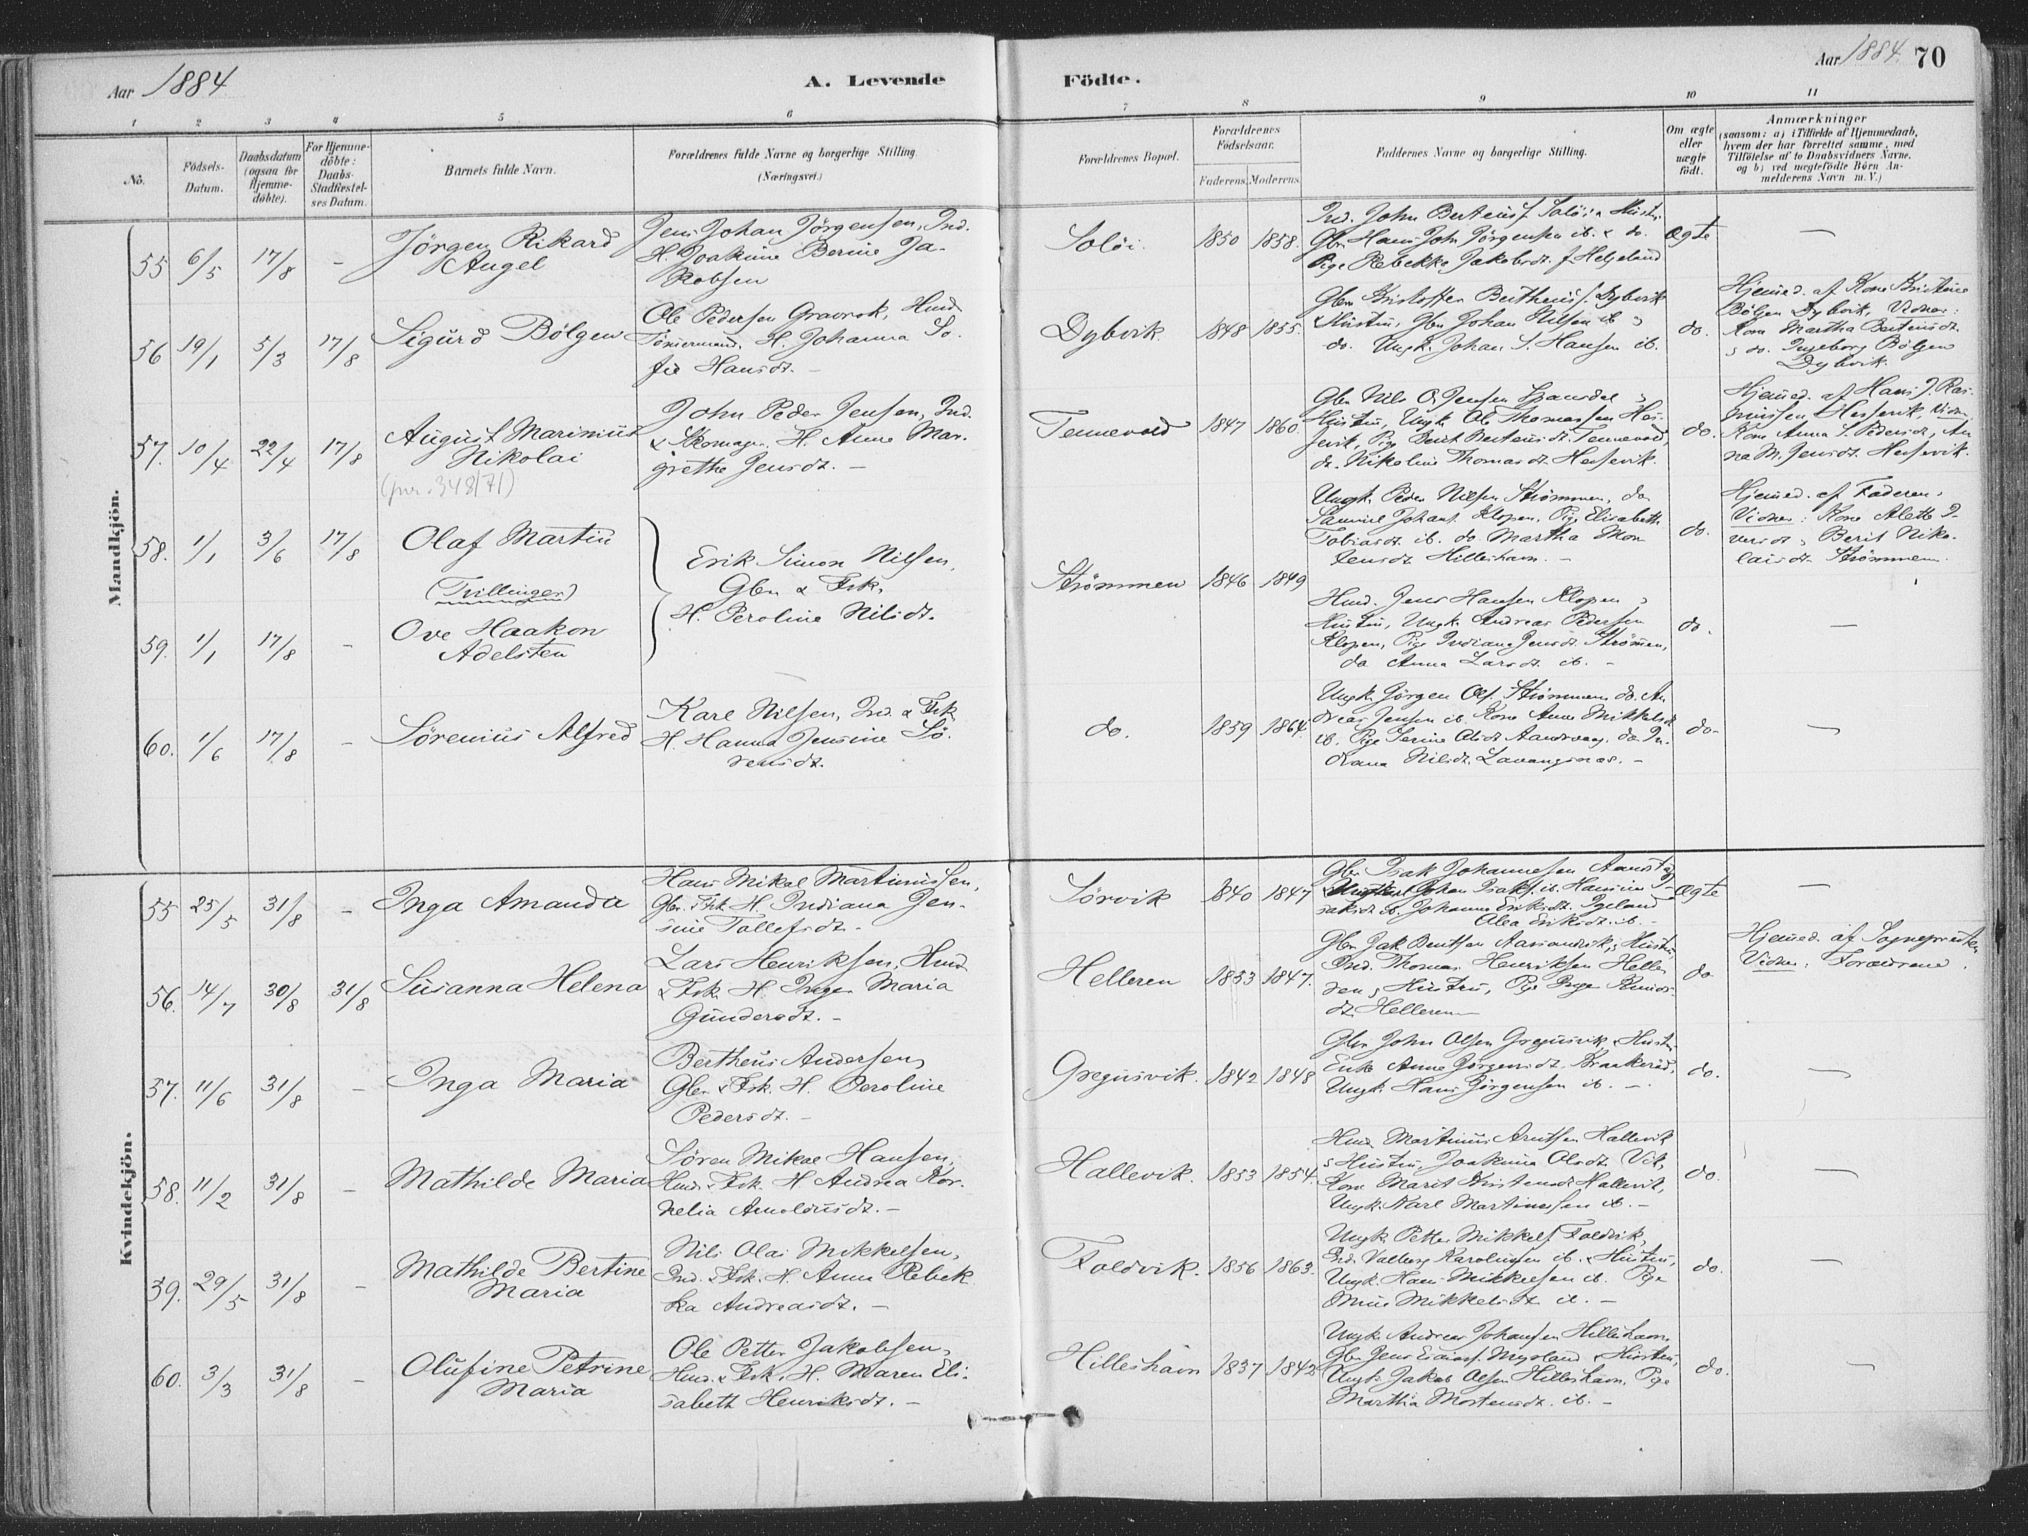 Aar 1884
A. Levende Födte.
Aar 1884. 70
1 2 3 4 5 6 7 8 9 10 11
No.
Födsels-
Datum.
Daabsdatum
(ogsaa for
Hjemme-
døbte).
For Hjemme-
døbte:
Daabs-
Stadfæstel-
ses Datum.
Barnets fulde Navn.
Forældrenes fulde Navne og borgerlige Stilling.
(Næringsvei.)
Forældrenes Bopæl.
Forældrenes
Födselsaar.
Faderens. Moderens.
Faddernes Navne og borgerlige Stilling.
Om ægte
eller
uægte
født.
Anmærkninger
(saasom: a) i Tilfælde af Hjemmedaab,
hvem der har forrettet samme, med
Tilföielse af to Daabsvidners Navne,
og b) ved uægtefödte Börn An-
melderens Navn m. V.)
Mandkjön.
55 6/5 17/8 -
Jörgen Rikard
Angel
Jens Johan Jörgensen, Ind.
H. Joakime Berine Ja-
kobsen
Soløi 1850 1858.
Ind. John Berteusf. Soløi & Hustru
Gbr. Hans John Jörgensen ib. & do.
Pige Rebekka Jakobsdt. f. Helgeland
Ægte —
56 19/1 5/3 17/8
Sigurd Bölgen
Ole Pedersen Gravrok, Husd.
Tömmermand. H. Johanna So-
fie Hansdt. —
Dybvik 1848 1855.
Gbr. Kristoffer Bertheusf. Dybvik
& Hustru, Gbr. Johan Nilsen ib &
do. Ungk. Johan S. Hansen ib.
do.
Hjemmed. af Kone Kristine
Bölgen Dybvik, Vidner:
Kone Martha Berteusdt.
& do. Ingeborg Bölgen
Dybvik.
57. 10/4 22/4 17/8
August Marinius
Nikolai
(jnr. 348/71)
John Peder Jensen, Ind.
& Skomager, H. Anne Mar-
grethe Jensdt. —
Tennevold 1847 1860.
Gbr. Nils O. Jensen Spansdal &
Hustru, Ungk. Ole Thomassen Hes-
jevik, Pige Berit Berteusdt. Tennevold,
do. Nikoline Thomasdt. Hesjevik.
do.
Hjemmed. af Hans J. Ras-
mussen Hesjevik, Vidner
Kone Anna S. Pedersdt., An-
na M. Jensdt. Hesjevik.
58. 1/1 3/6 17/8
Olaf Martin
(Tvillinger)
Erik Simon Nilsen,
Gbr. & Fsk.
H. Peroline Nilsdt.
Strömmen 1846 1849
Ungk. Peder Nilsen Strömmen, do
Samuel Johans. Klopen, Pige Elisabeth
Tobiasdt. ib. do Martha Mor-
tensdt. Hilleshavn. —
do.
Hjemmed. af Faderen.
Vidner: Kone Alette I-
versdt. & Berit Niko-
laisdt. Strömmen.
59. 1/1 17/8 -
Ove Haakon
Adelsten
Husd. Jens Hansen Klopen &
Hustru, Ungk. Andreas Pedersen
Klopen, Pige Indiana Jensdt. Strömmen,
do Anna Larsdt. ib. —
do. —
60. 1/6 17/8 -
Sörenius Alfred
Karl Nilsen, Ind. & Fsk.
H. Hanna Jensine Sö-
rensdt.
do. 1859 1864.
Ungk. Jörgen Ols. Strömmen, do. An-
dreas Jensen ib. Kone Anne Mikkelsdt.
ib. Pige Serine Olsdt. Aandsvaag. do In-
diana Nilsdt. Lavangsnæs. —
do. —
Kvindekjön.
55 25/5 31/8 -
Inga Amanda
Hans Mikal Martinussen,
Gbr. Fsk. H. Indiana Jen-
sine Tollefsdt.
Sörvik 1840 1847
Gbr. Isak Johannesen Aanstad
Johan Isaks. ib. Hansine I-
saksdt. ib. Johanna Eriksdt. Igeland
Olea Eriksdt. ib. —
Ægte —
56. 14/7 30/8 31/8
Susanna Helena
Lars Henriksen, Husd.
& Fsk. H. Inger Maria
Gundersdt. —
Helleren 1853 1847.
Gbr. Jak. Bentsen & Hustru
Ind. Thomas Henriksen Helle-
ren & Hustru, Pige Inge Knuds-
dt. Helleren
do
Hjemmed. af Sognepresten
Vidner. Forældrene.
57. 11/6 31/8 -
Inga Maria
Bertheus Andersen,
Gbr. & Fsk. H. Peroline
Pedersdt. —
Gregusvik. 1842 1848
Gbr. John Olsen Gregusvik & Hustru,
Enke Anne Jörgensdt.
Ungk. Hans Jörgensen ib. —
do. —
58. 11/2 31/8 -
Mathilde Maria
Sören Mikal Hansen,
Husd. & Fsk. H. Andrea Kor-
nelia Arnoldusdt. —
Hallevik. 1853 1854.
Husd. Martinus Arntsen Hallevik
& Hustru, Joakima Olsdt. Vik,
Kone Marit Kristensdt. Hallevik,
Ungk. Karl Martinussen ib. —
do. —
59. 29/5 31/8 -
Mathilde Bertine
Maria
Nils Olai Mikkelsen,
Ind. & Fsk. H. Anna Rebek-
ka Andreasdt. —
Foldvik. 1856 1863.
Ungk. Petter Mikkels. Foldvik,
Ind. Valberg Karolinsen ib. & Hustru,
Ungk. Hans Mikkelsen ib. Pige
Mikkelsdt. ib. —
do. —
60. 3/3 31/8 -
Olufine Petrine
Maria
Ole Petter Jakobsen,
Husd. & Fsk. H. Maren Eli-
sabeth Henriksdt. —
Hilleshavn 1837 1842
Ungk. Andreas Johansen Hilleshavn,
Gbr. Jens Myrland & Hustru,
Ungk. Jakob Olsen Hilleshavn. Pige
Martha Mortensdt. ib. —
do. —